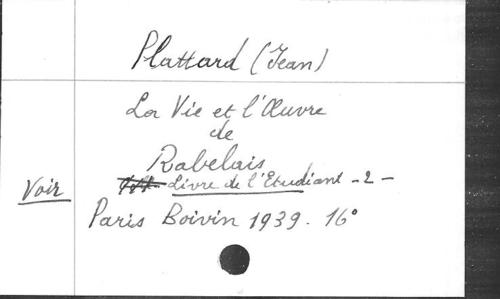 Plattard (Jean)
La Vie et l'Œuvre
de
Rabelais
Voir Livre de l'Etudiant - 2 -
Paris Boivin 1939. 16°